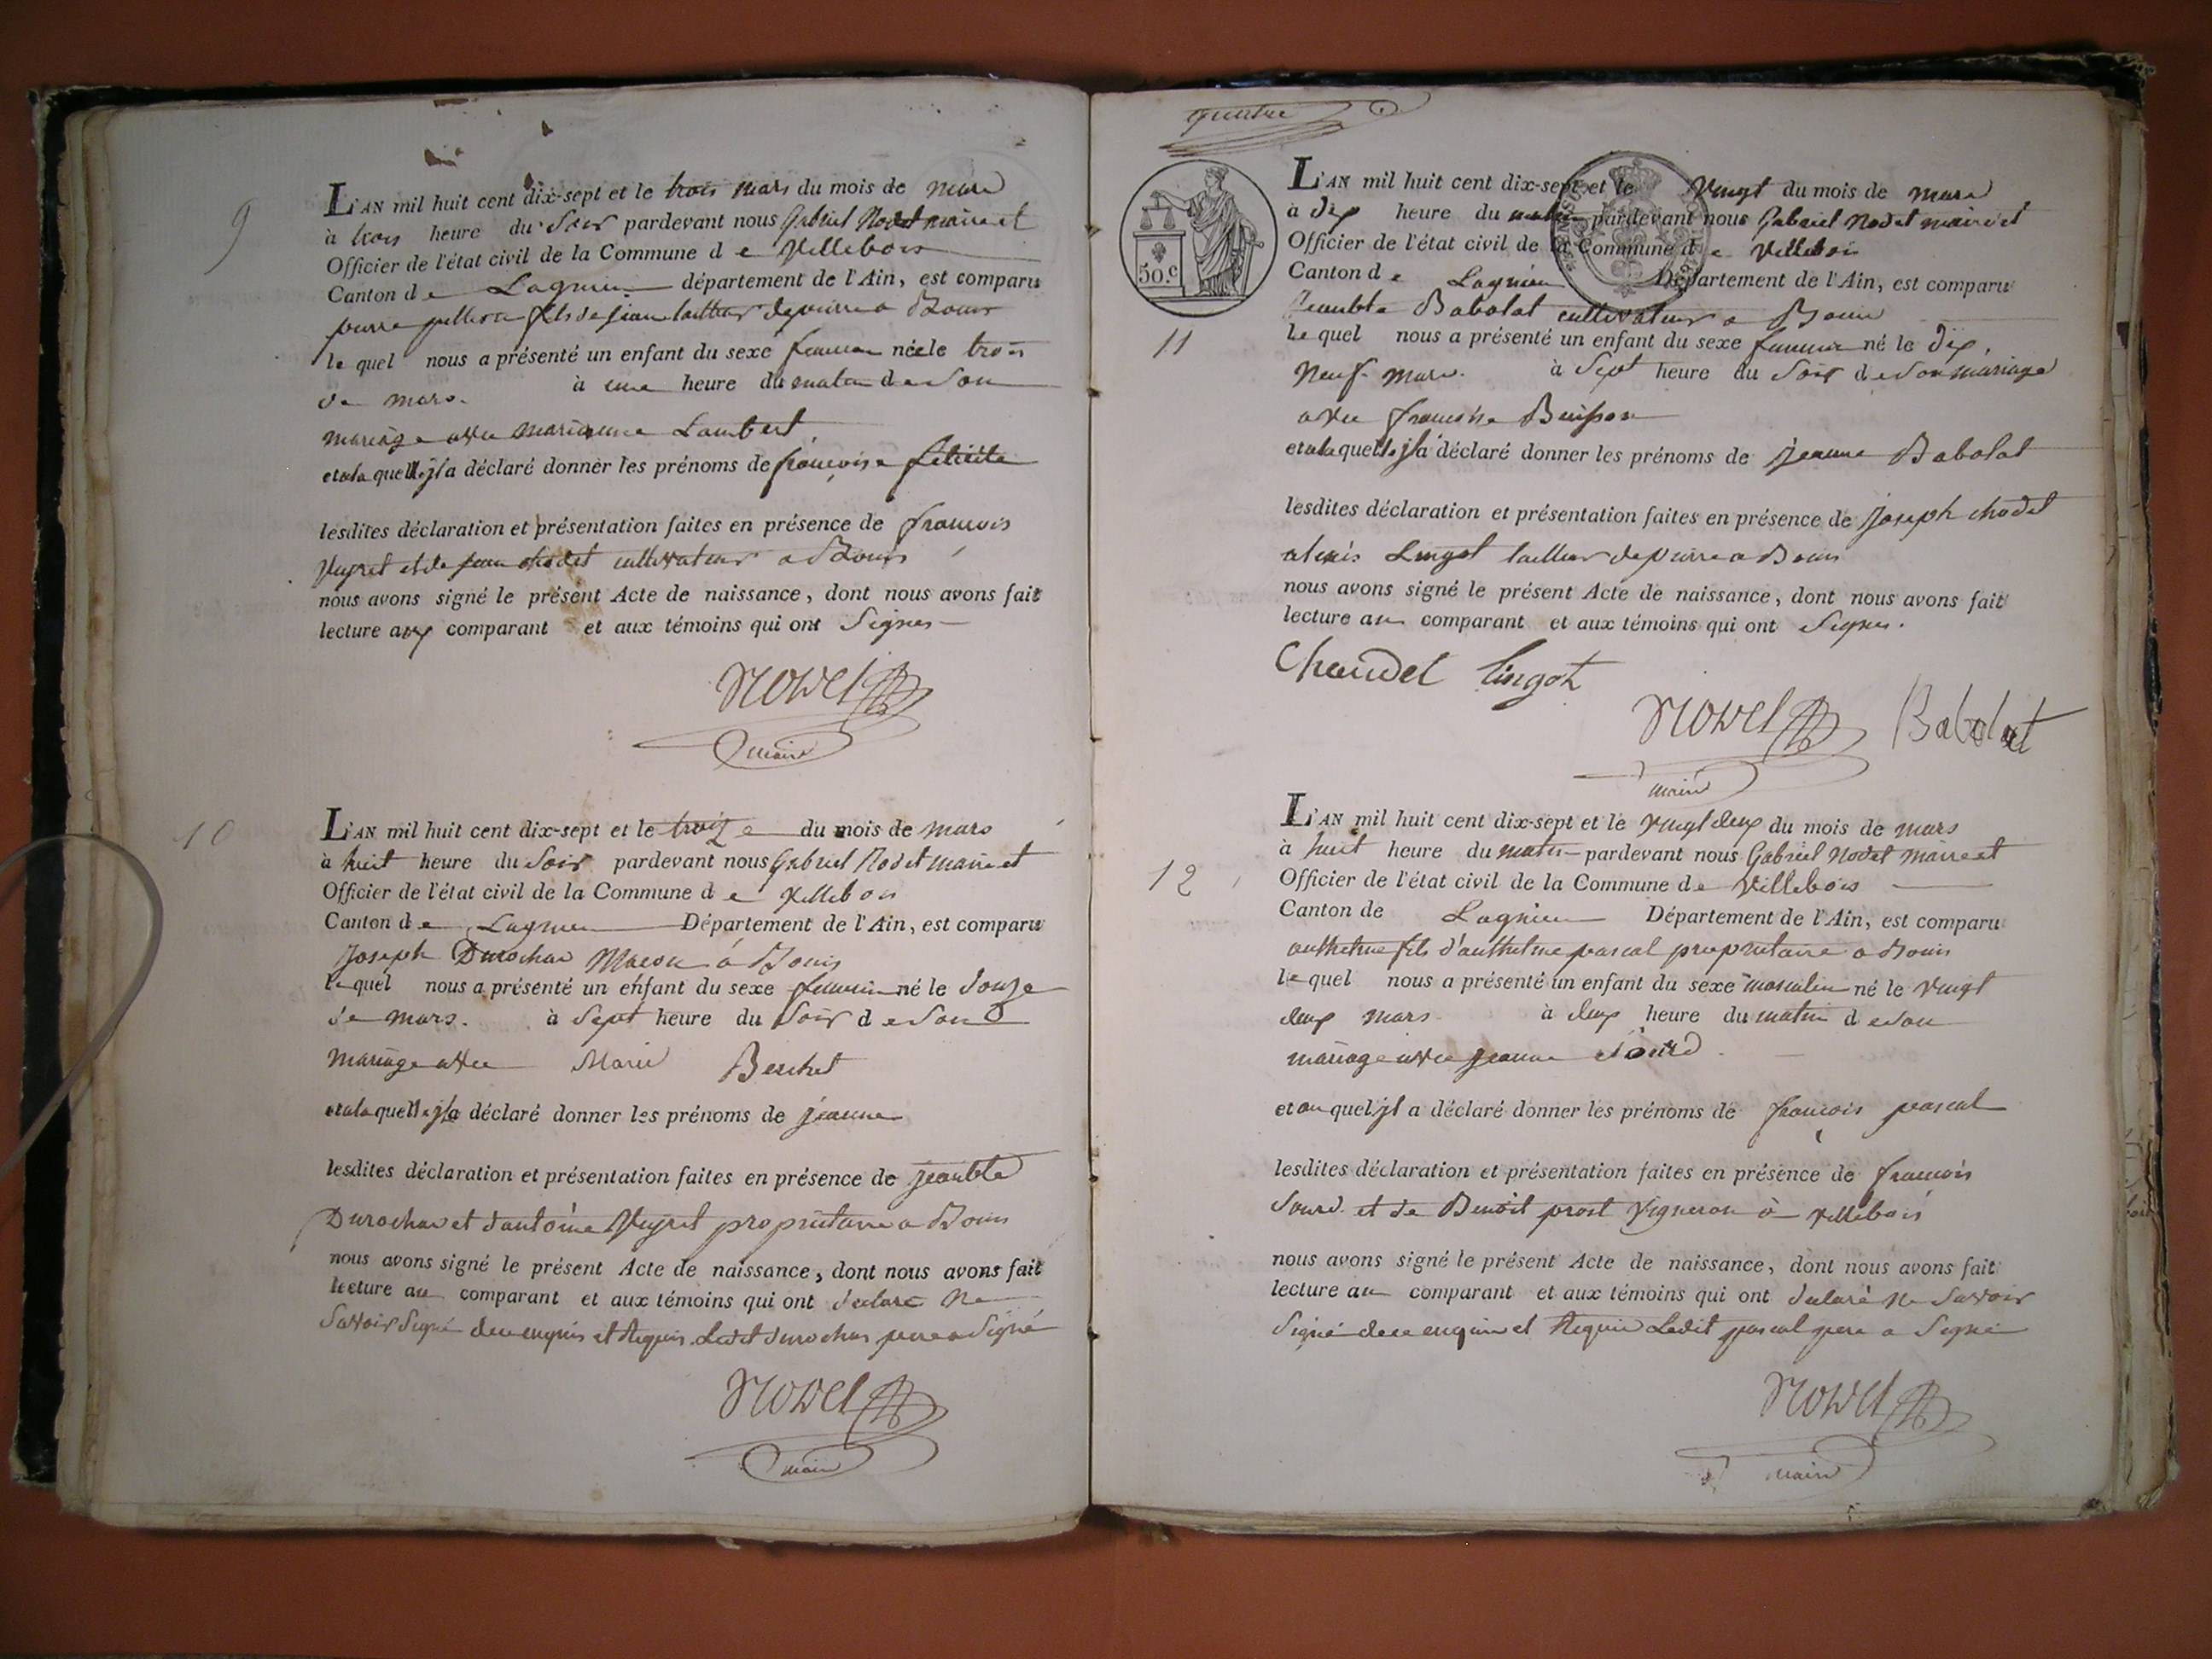 9
L'AN mil huit cent dix-sept et le trois mars du mois de mars
à trois heure du Soir pardevant nous Gabriel Nodet maire et
Officier de l'état civil de la Commune d e Villebois
Canton d e Lagnieu département de l'Ain, est comparu
pierre fils de jean tailleur de pierre a Bouis
le quel nous a présenté un enfant du sexe feminin née le trois
de mars. à une heure du matin de son
mariage avec marianne Lambert
et a la quelle jl a déclaré donner les prénoms de françoise félicité
lesdites déclaration et présentation faites en présence de francois
Veyret et de jean chodet cultivateur a Bouis
nous avons signé le présent Acte de naissance, dont nous avons fait
lecture aux comparant et aux témoins qui ont Signés
Nodet
maire
10
L'AN mil huit cent dix-sept et le treize du mois de mars
à huit heure du Soir pardevant nous Gabriel Nodet maire et
Officier de l'état civil de la Commune d e Villebois
Canton d e Lagnieu Département de l'Ain, est comparu
Joseph Durochat Macon à Bouis
le quel nous a présenté un enfant du sexe feminin né le douze
de mars. à Sept heure du Soir d e son
mariage avec Marie Berchet
et a la quelle jl a déclaré donner les prénoms de jeanne
lesdites déclaration et présentation faites en présence de jeanbte
Durochat et d'antoine Veyret proprietaire a Bouis
nous avons signé le présent Acte de naissance, dont nous avons fait
lecture au comparant et aux témoins qui ont declaré ne
Savoir Signé de ce enquis et Requis Ledit durochat pere a Signé
Nodet
maire
quatre
50.c
L'AN mil huit cent dix-sept et le Vingt du mois de mars
à dix heure du matin pardevant nous Gabriel Nodet maire et
Officier de l'état civil de la Commune d e Villebois
Canton d e Lagnieu Département de l'Ain, est comparu
Jeanbte Babolat cultivateur a Bouis
11
le quel nous a présenté un enfant du sexe feminin né le dix
Neuf mars. à Sept heure du Soir d e son mariage
avec francoise Buisson
et a la quelle jl a déclaré donner les prénoms de jeanne Babolat
lesdites déclaration et présentation faites en présence de Joseph chodet
alexis Lingot tailleur de pierre a Bouis
nous avons signé le présent Acte de naissance, dont nous avons fait
lecture au comparant et aux témoins qui ont Signés.
Chaudet lingot
Nodet Babolat
maire
12
L'AN mil huit cent dix-sept et le vingt deux du mois de mars
à huit heure du matin pardevant nous Gabriel Nodet maire et
Officier de l'état civil de la Commune d e Villebois
Canton de Lagnieu Département de l'Ain, est comparu
anthelme fils d'anthelme pascal proprietaire a Bouis
le quel nous a présenté un enfant du sexe masculin né le Vingt
deux mars à deux heure du matin d e son
mariage avec jeanne Sourd
et au quel jl a déclaré donner les prénoms de françois pascal
lesdites déclaration et présentation faites en présence de francois
Sourd et de Benoit prost Vigneron à Villebois
nous avons signé le présent Acte de naissance, dont nous avons fait
lecture au comparant et aux témoins qui ont declaré ne Savoir
Signé de ce enquis et Requis Ledit pascal pere a Signé
Nodet
maire